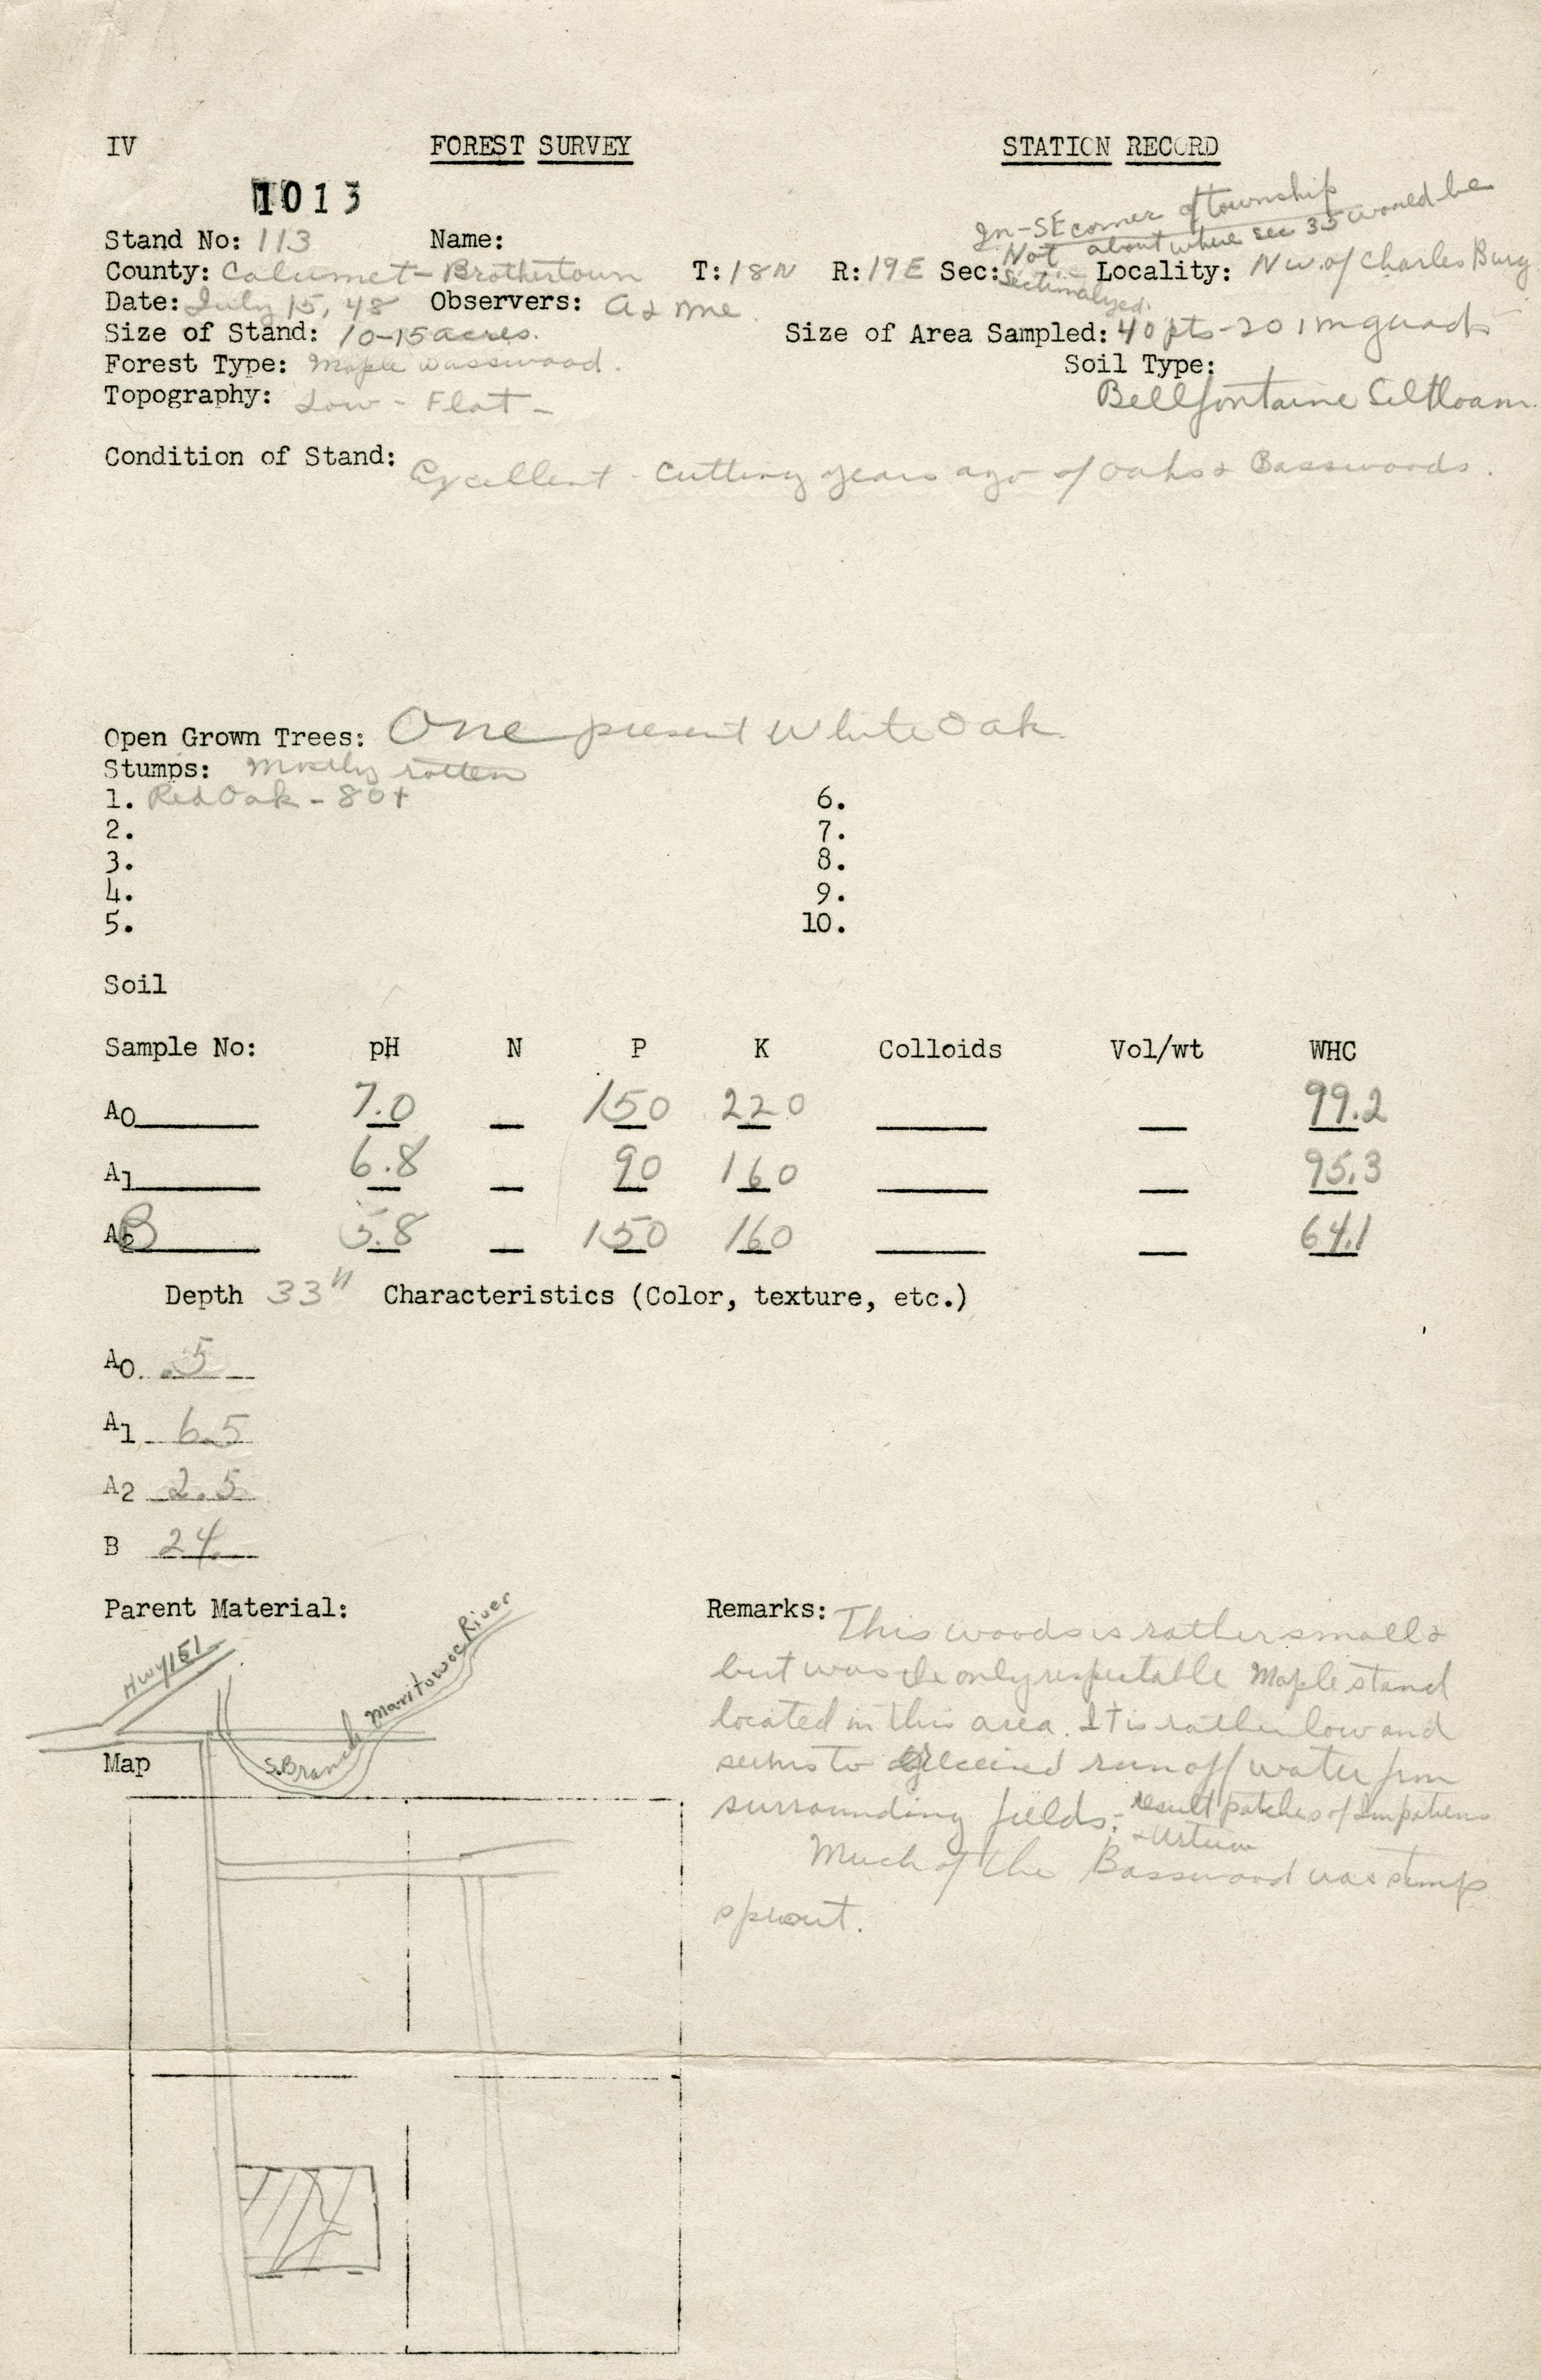 IV FOREST SURVEY STATION RECORD
1013
In-SE corner of township
Stand No: 113 Name: Not about where sec 35 would be
County: Calumet - Brothertown T: 18N R: 19E Sec: Sectionalyzed. Locality: NW. of Charles Burg
Date: July 15, 48 Observers: a & me.
Size of Stand: 10-15 acres. Size of Area Sampled: 40 pts - 20 1 m quads
Forest Type: Maple Basswood. Soil Type:
Topography: Low - Flat - Bellfontaine Siltloam.
Condition of Stand: Excellent - cutting years ago of oaks & Basswoods.
Open Grown Trees: One present White Oak
Stumps: Mostly rotten
1. Red Oak - 80+ 6.
2. 7.
3. 8.
4. 9.
5. 10.
Soil
Sample No: pH N P K Colloids Vol/wt WHC
A0 7.0 150 220 99.2
A1 6.8 90 160 95.3
B 5.8 150 160 64.1
Depth 33" Characteristics (Color, texture, etc.)
A0. .5
A1 6.5
A2 2.5
B 24
Parent Material: Remarks: This woods is rather small &
but was the only respectable Maple stand
located in this area. It is rather low and
seems to received run off water from
surrounding fields; - result patches of Impatiens
Much of the Basswood was stump
sprout.
Hwy 151
S. Branch Manitowoc River
Map